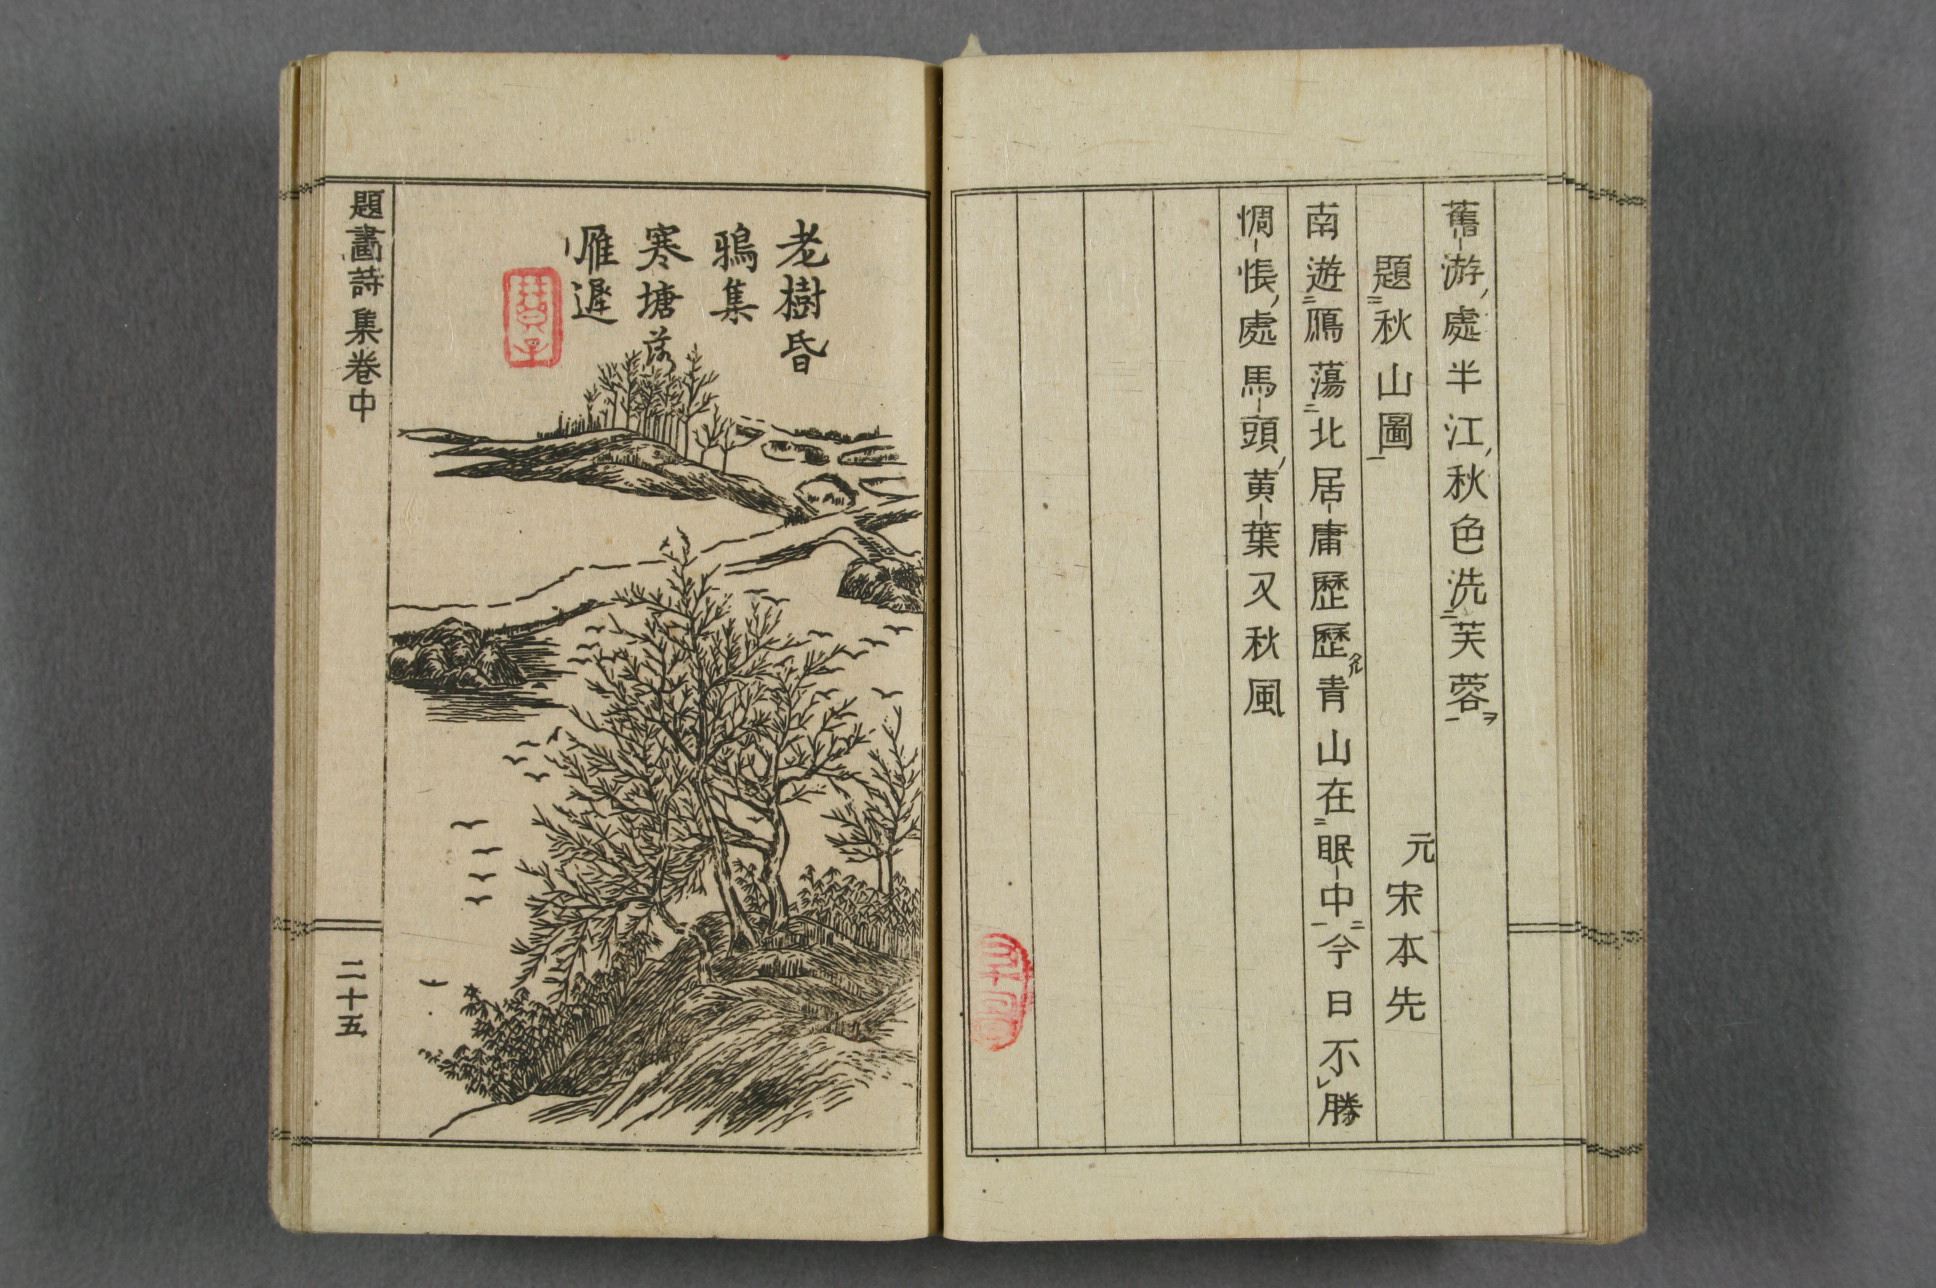 舊游處半江秋色洗芙蓉
題秋山圖
元宋本先
南遊鴈蕩北居庸歷歷青山在眠中今日不勝
惆悵處馬頭黄葉又秋風
老樹昏
鴉集
寒塘落
雁遲
題畵詩集卷中
二十五